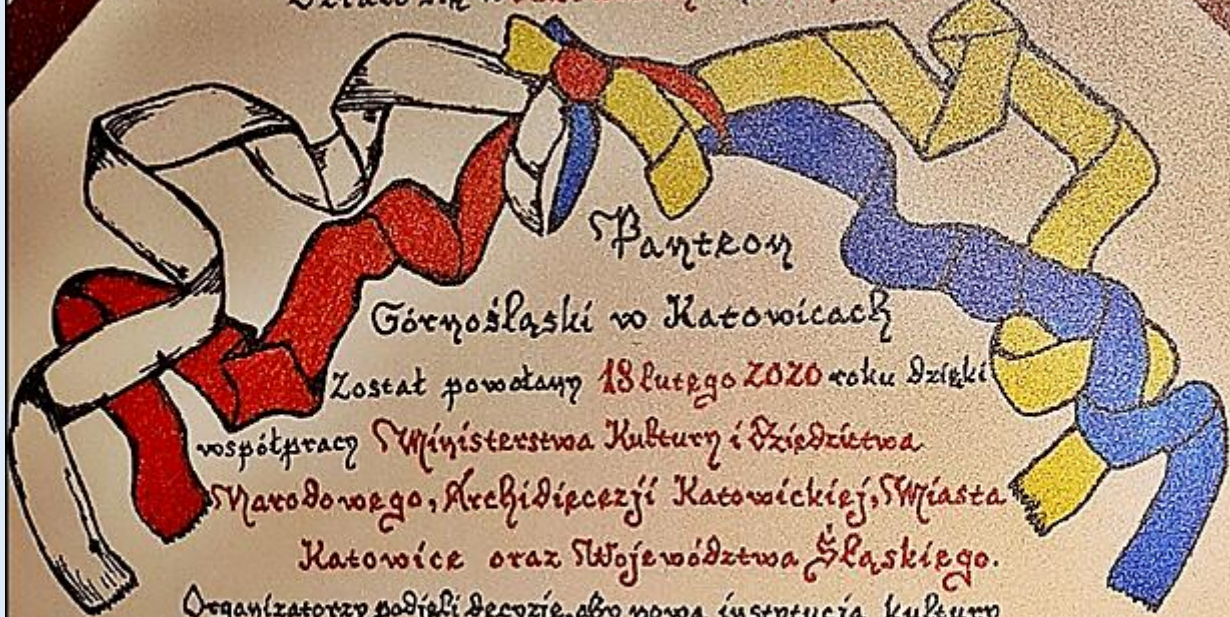 Panteon
Górnośląski w Katowicach
Został powołany 18 lutego 2020 roku dzięki
współpracy Ministerstwa Kultury i Dziedzictwa
Narodowego, Archidiecezji Katowickiej, Miasta
Katowice oraz Województwa Śląskiego.
Organizatorzy podjęli decyzję, aby nowa instytucja kultury